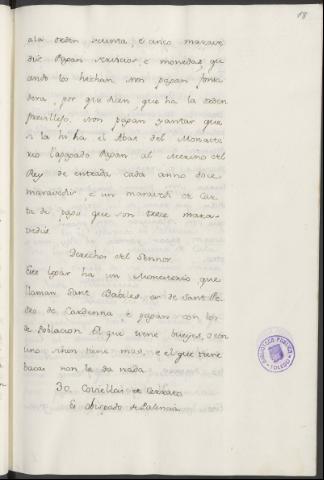 18
ala orden treinta, e cinco marave
dis. Pagan servicios, e monedas, qu
ando los hechan. Non pagan fonsa
dera, por que dicen, que ha la orden
previllejo. Non pagan yantar que
si la hi ha el Abat del Monaste
rio
Rey de entrada cada anno doce
maravedis, e un maravedi de Car
ta de pago que son trece mara-
vedis.
Derechos del Sennor.
Este logar ha un Monesterio que
llaman Sant Babiles, es de Sant Pe
dro de Cardenna, e pagan con los
de Poblacion. El que tiene bueyes, e con
uno, si non tiene mas, e el que tiene
bacas non le da nada.
30 Coviellas de Cerrato
Es obispado de Palencia
BIBLIOTECA PUBLICA
TOLEDO